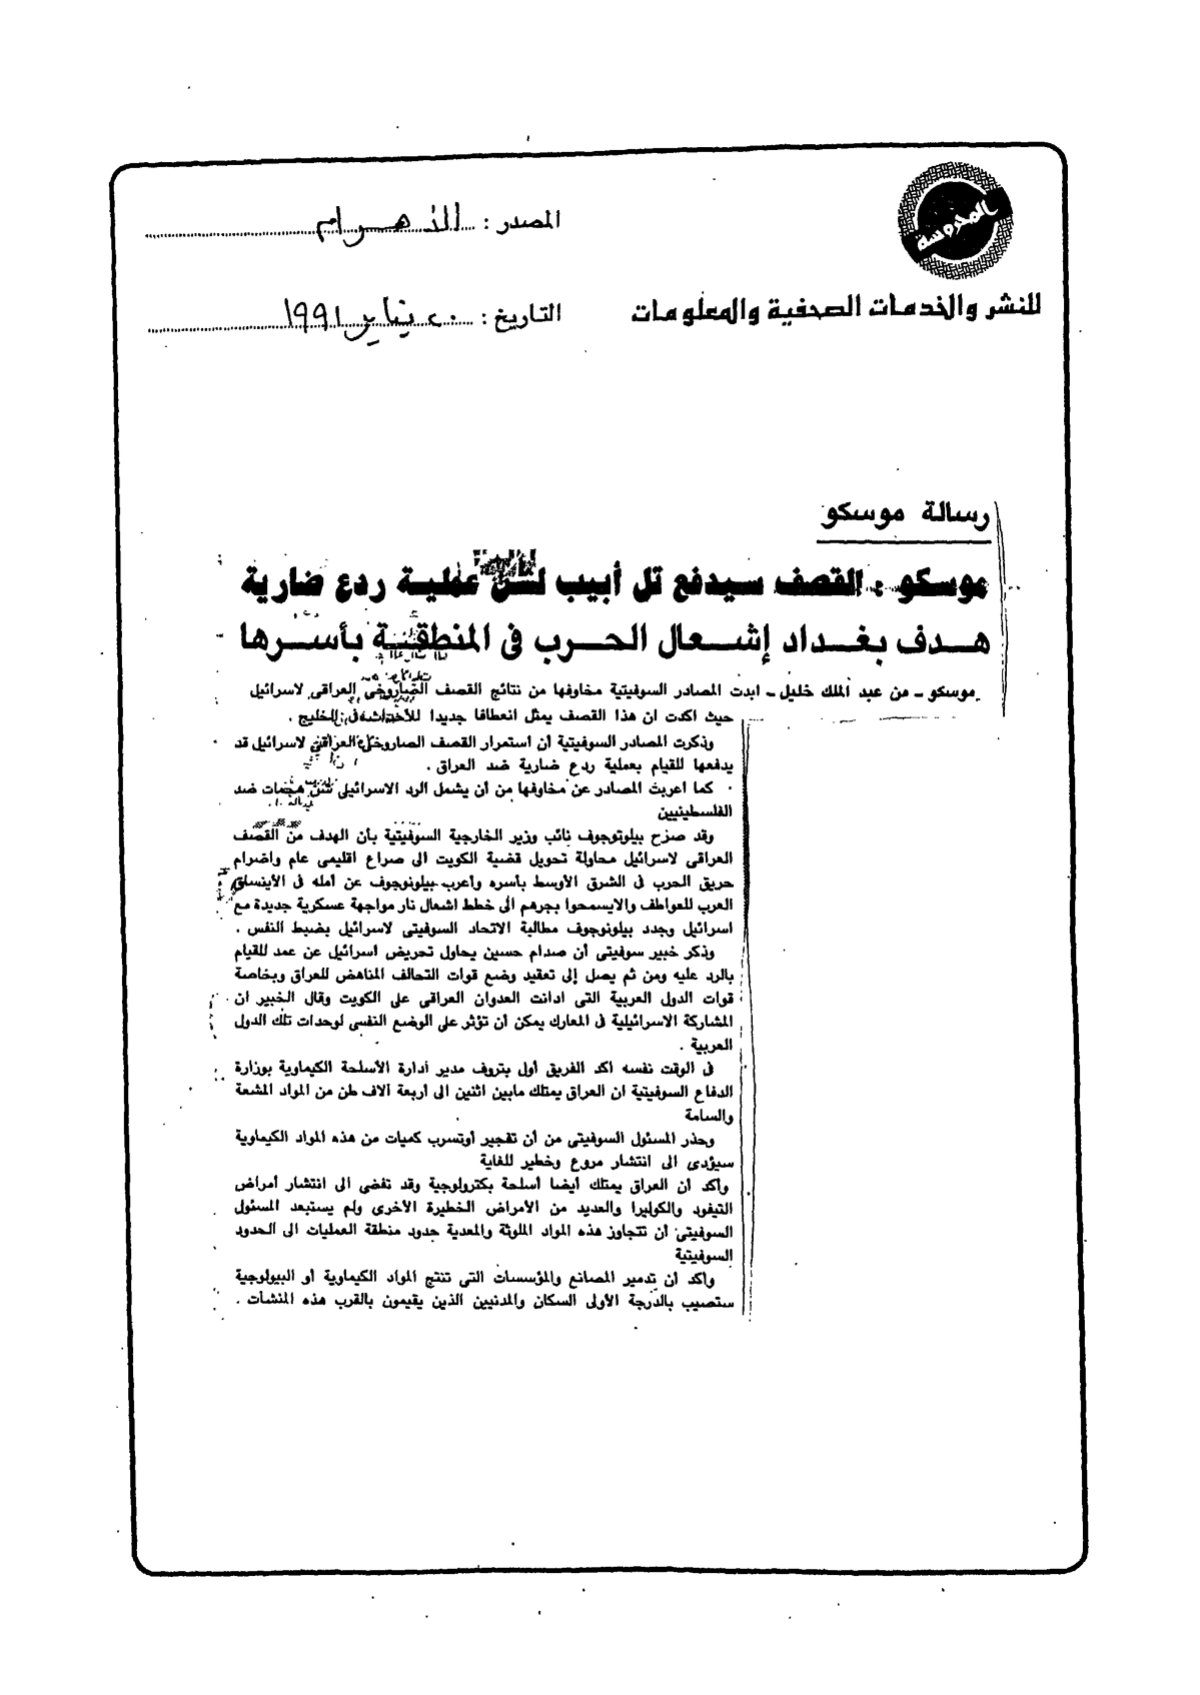 المحروسة
للنشر والخدمات الصحفية والمعلومات
المصدر : الأهرام
التاريخ : ٢٠ يناير ١٩٩١
رسالة موسكو
موسكو : القصف سيدفع تل أبيب لشن عملية ردع ضارية
هدف بغداد إشعال الحرب فى المنطقة بأسرها
موسكو ـ من عبد الملك خليل ـ ابدت المصادر السوفيتية مخاوفها من نتائج القصف الصاروخى العراقى لاسرائيل
حيث اكدت ان هذا القصف يمثل انعطافا جديدا للأحداث فى الخليج .
وذكرت المصادر السوفيتية أن استمرار القصف الصاروخى العراقى لاسرائيل قد
يدفعها للقيام بعملية ردع ضارية ضد العراق .
كما اعربت المصادر عن مخاوفها من أن يشمل الرد الاسرائيلى شن هجمات ضد
الفلسطينيين
وقد صرح بيلونوجوف نائب وزير الخارجية السوفيتية بأن الهدف من القصف
العراقى لاسرائيل محاولة تحويل قضية الكويت الى صراع اقليمى عام واضرام
حريق الحرب فى الشرق الأوسط بأسره وأعرب بيلونوجوف عن أمله فى الأينساق
العرب للعواطف والايسمحوا بجرهم الى خطط اشعال نار مواجهة عسكرية جديدة مع
اسرائيل وجدد بيلونوجوف مطالبة الاتحاد السوفيتى لاسرائيل بضبط النفس .
وذكر خبير سوفيتى أن صدام حسين يحاول تحريض اسرائيل عن عمد للقيام
بالرد عليه ومن ثم يصل إلى تعقيد وضع قوات التحالف المناهض للعراق وبخاصة
قوات الدول العربية التى ادانت العدوان العراقى على الكويت وقال الخبير ان
المشاركة الاسرائيلية فى المعارك يمكن أن تؤثر على الوضع النفسى لوحدات تلك الدول
العربية .
فى الوقت نفسه اكد الفريق أول بتروف مدير ادارة الأسلحة الكيماوية بوزارة
الدفاع السوفيتية ان العراق يمتلك مابين اثنين الى أربعة آلاف طن من المواد المشعة
والسامة
وحذر المسئول السوفيتى من أن تفجير أوتسرب كميات من هذه المواد الكيماوية
سيؤدى الى انتشار مروع وخطير للغاية
وأكد أن العراق يمتلك أيضا أسلحة بكترولوجية وقد تفضى الى انتشار أمراض
التيفود والكوليرا والعديد من الأمراض الخطيرة الأخرى ولم يستبعد المسئول
السوفيتى أن تتجاوز هذه المواد الملوثة والمعدية حدود منطقة العمليات الى الحدود
السوفيتية
واكد ان تدمير المصانع والمؤسسات التى تنتج المواد الكيماوية أو البيولوجية
ستصيب بالدرجة الأولى السكان والمدنيين الذين يقيمون بالقرب هذه المنشآت .